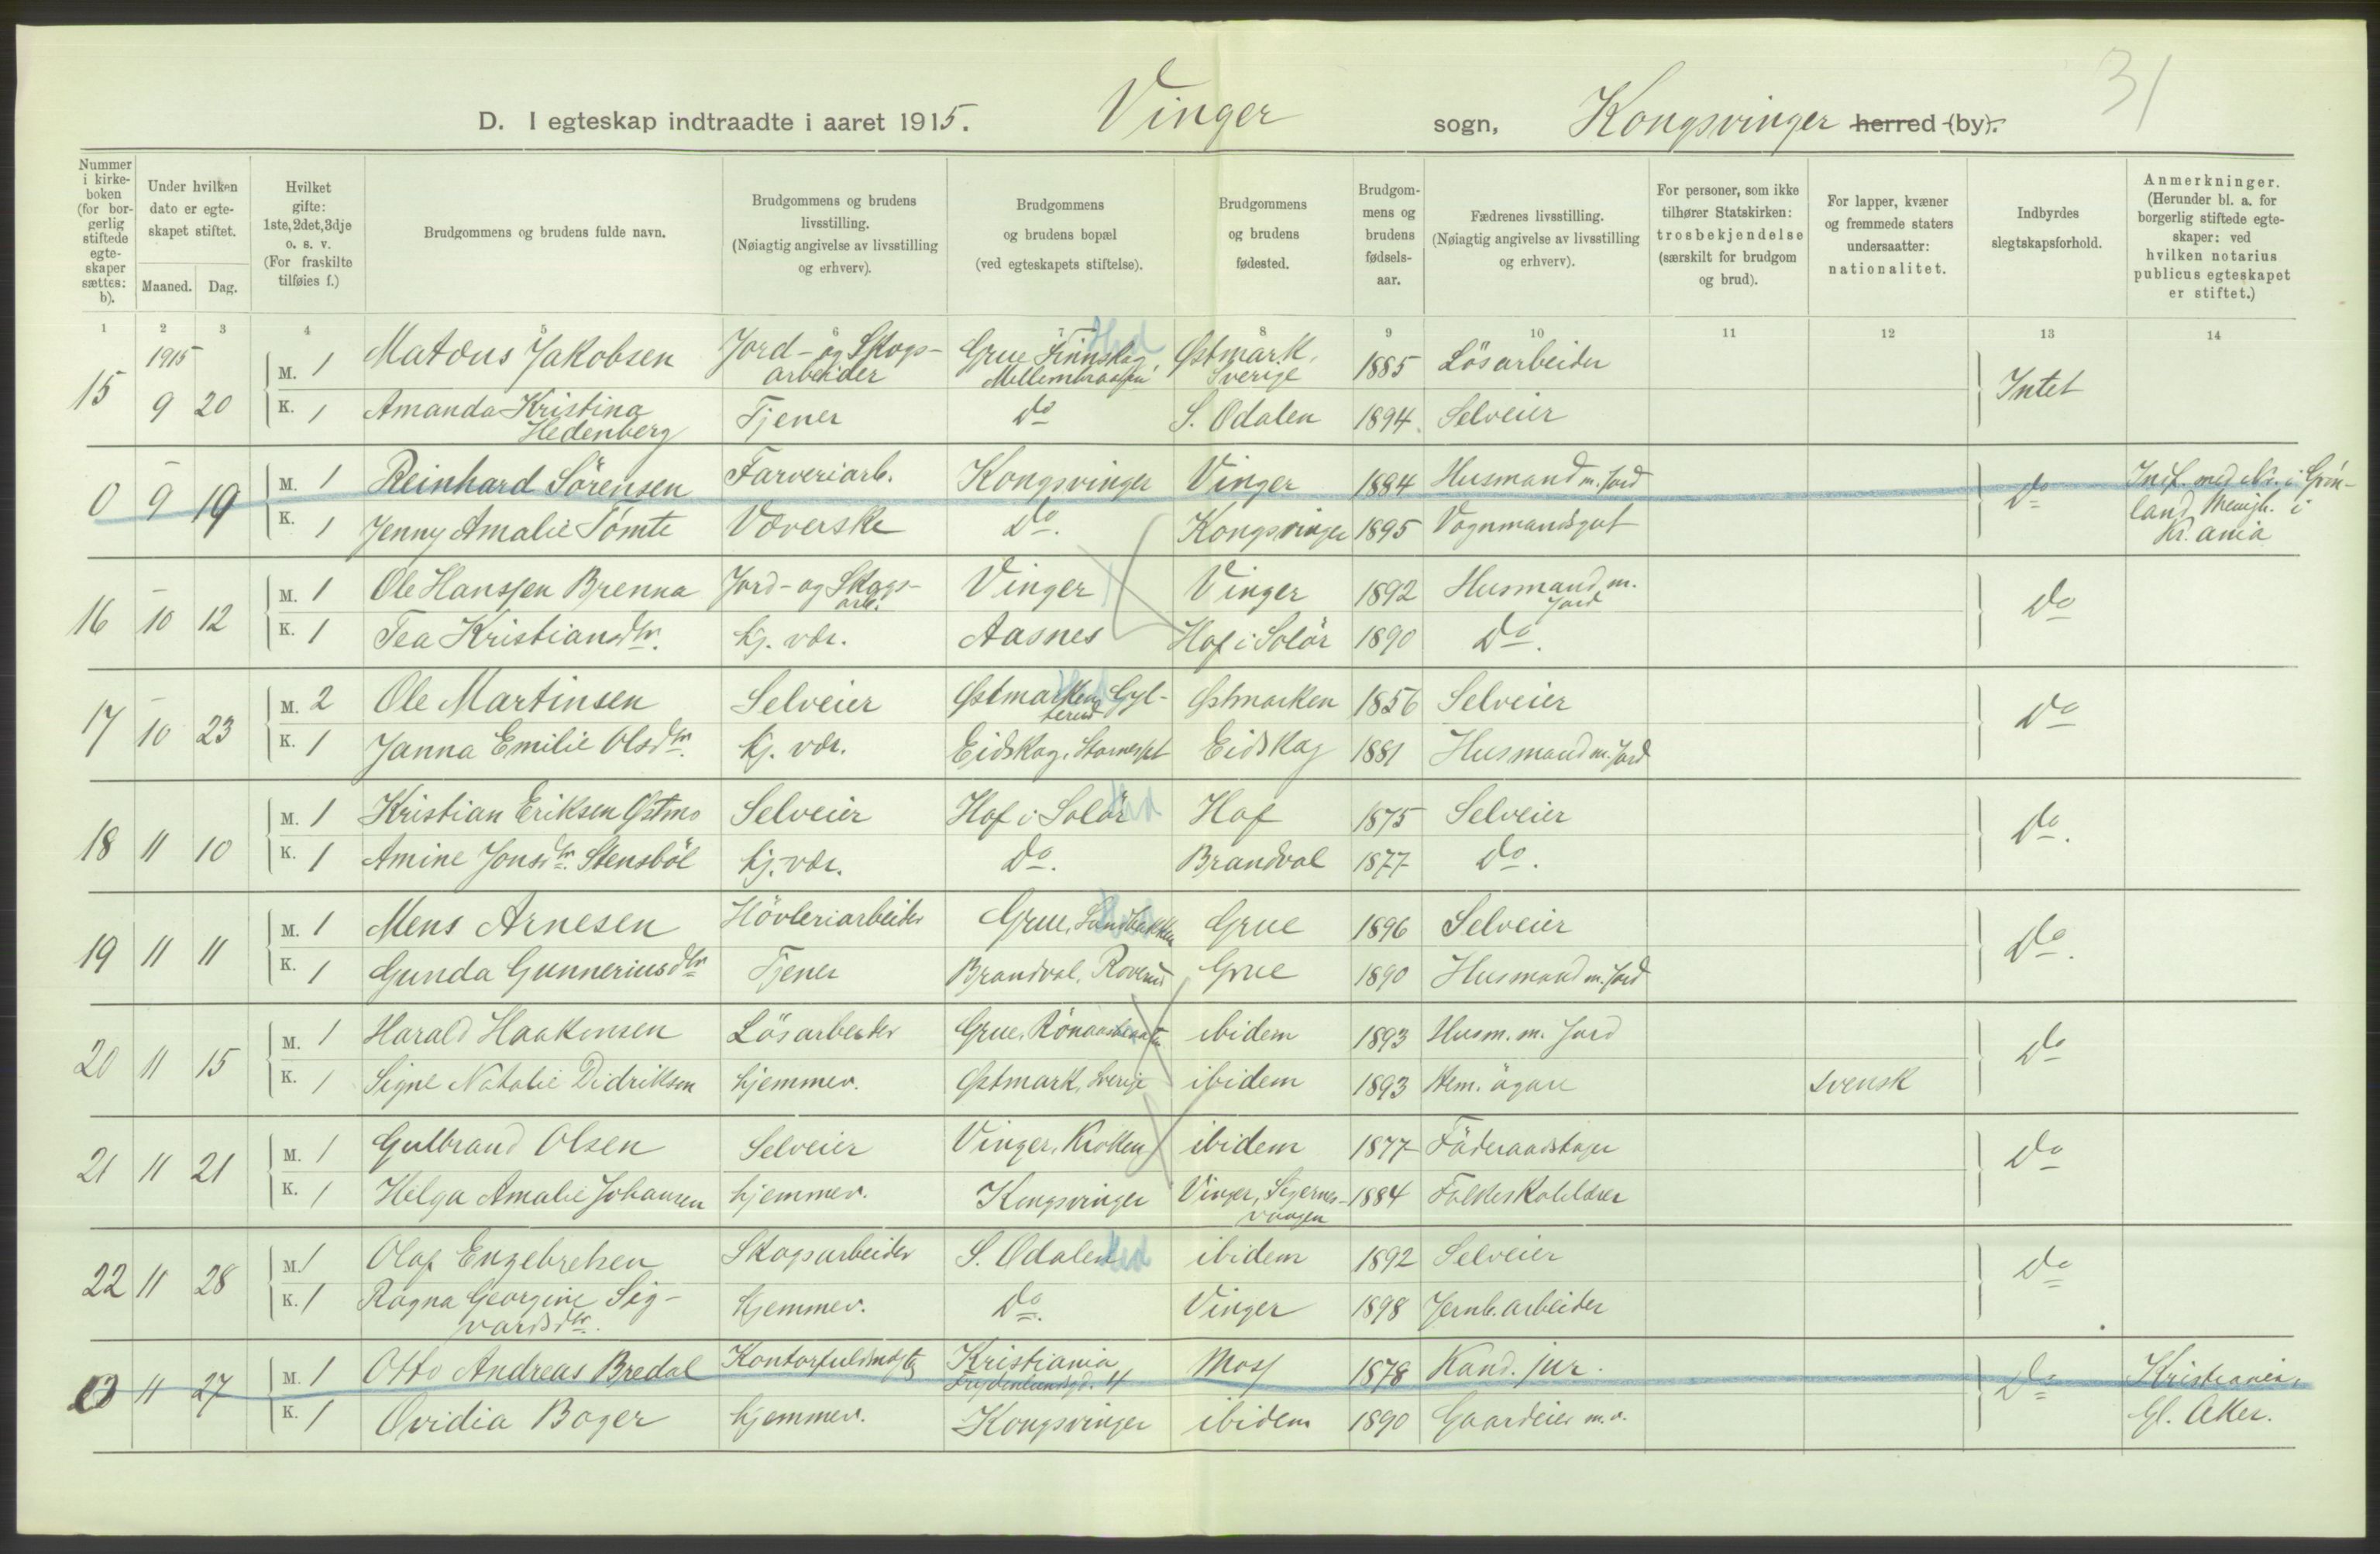 31
D. I egteskap indtraadte i aaret 1915. Vinger sogn, Kongsvinger herred (by).
Nummer i kirke-boken (for bor-gerlig stiftede egte-skaper sættes: b).
Under hvilken dato er egte-skapet stiftet.
Maaned. Dag.
Hvilket gifte: 1ste, 2det, 3dje o. s. v. (For fraskilte tilføies f.)
Brudgommens og brudens fulde navn.
Brudgommens og brudens livsstilling. (Nøiagtig angivelse av livsstilling og erhverv).
Brudgommens og brudens bopæl (ved egteskapets stiftelse).
Brudgommens og brudens fødested.
Brudgom-mens og brudens fødsels-aar.
Fædrenes livsstilling. (Nøiagtig angivelse av livsstilling og erhverv).
For personer, som ikke tilhører Statskirken: trosbekjendelse (særskilt for brudgom og brud).
For lapper, kvæner og fremmede staters undersaatter: nationalitet.
Indbyrdes slegtskapsforhold.
Anmerkninger. (Herunder bl. a. for borgerlig stiftede egte-skaper: ved hvilken notarius publicus egteskapet er stiftet.)
1 2 3 4 5 6 7 8 9 10 11 12 13 14
1915
15 9 20 M. 1 Matæus Jakobsen Jord- og Skogs-arbeider Grue Finnskog Østmark, Sverige 1885 Løsarbeider Intet
K. 1 Amanda Kristina Hedenberg Tjener Do S. Odalen 1894 Selveier
0 9 19 M. 1 Reinhard Sörensen Farveriarb. Kongsvinger Vinger 1884 Husmand m. Jord Do
K. 1 Jenny Amalie Tömte Væverske Do. Kongsvinger 1895 Vognmandsgut land Menigh. i Kr.ania
16 10 12 M. 1 Ole Hanssen Brenna Jord- og Skogs-arb. Vinger Vinger 1892 Husmand m. Jord Do
K. 1 Tea Kristiansdtr. hj. vær. Aasnes Hof i Solör 1890 Do.
17 10 23 M. 2 Ole Martinsen Selveier Østmarken Gyl-terud Østmarken 1856 Selveier Do
K. 1 Janna Emilie Olsdtr. hj. vær. Eidskog, Eidskog 1881 Husmand m. Jord
18 11 10 M. 1 Kristian Eriksen Østmo Selveier Hof i Solör Hof 1875 Selveier Do.
K. 1 Amine Jonsdtr. Stensböl hj. vær. Do. Brandval 1877 Do.
19 11 11 M. 1 Mens Arnesen Hövleriarbeider Grue, Sandbakken Grue 1896 Selveier Do.
K. 1 Gunda Gunneriusdtr Tjener Brandval, Roverud Grue 1890 Husmand m. Jord
20 11 15 M. 1 Harald Haakensen Lösarbeider Grue, ibidem 1893 Husm. m. Jord Do
K. 1 Signe Natalie Didrikson hjemmev. Østmark, Sverige ibidem 1893 Hem. ägare svensk
21 11 21 M. 1 Gulbrand Olsen Selveier Vinger, Krokken ibidem 1877 Föderaadstager Do
K. 1 Helga Amalie Johansen hjemmev. Kongsvinger Vinger, Sigernes-vaagen 1884 Folkeskolelærer
22 11 28 M. 1 Olaf Engebretsen Skogsarbeider S. Odalen ibidem 1892 Selveier Do
K. 1 Ragna Georgine Sig-vardsdtr. hjemmev. Do. Vinger 1898 Jernb. arbeider
0 11 27 M. 1 Otto Andreas Bredal Kontorfuldmægtig Kristiania Frydenlundsgd. 4 Moss 1878 Kand. jur. Do Kristiania,
K. 1 Ovidia Boger hjemmev. Kongsvinger ibidem 1890 Gaardeier m.v. Gl. Aker.